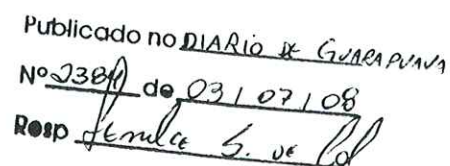 Publicado no DIARIO DE GUARAPUAVA
Nº 2384 de 03 / 07 / 08
Resp S. DE